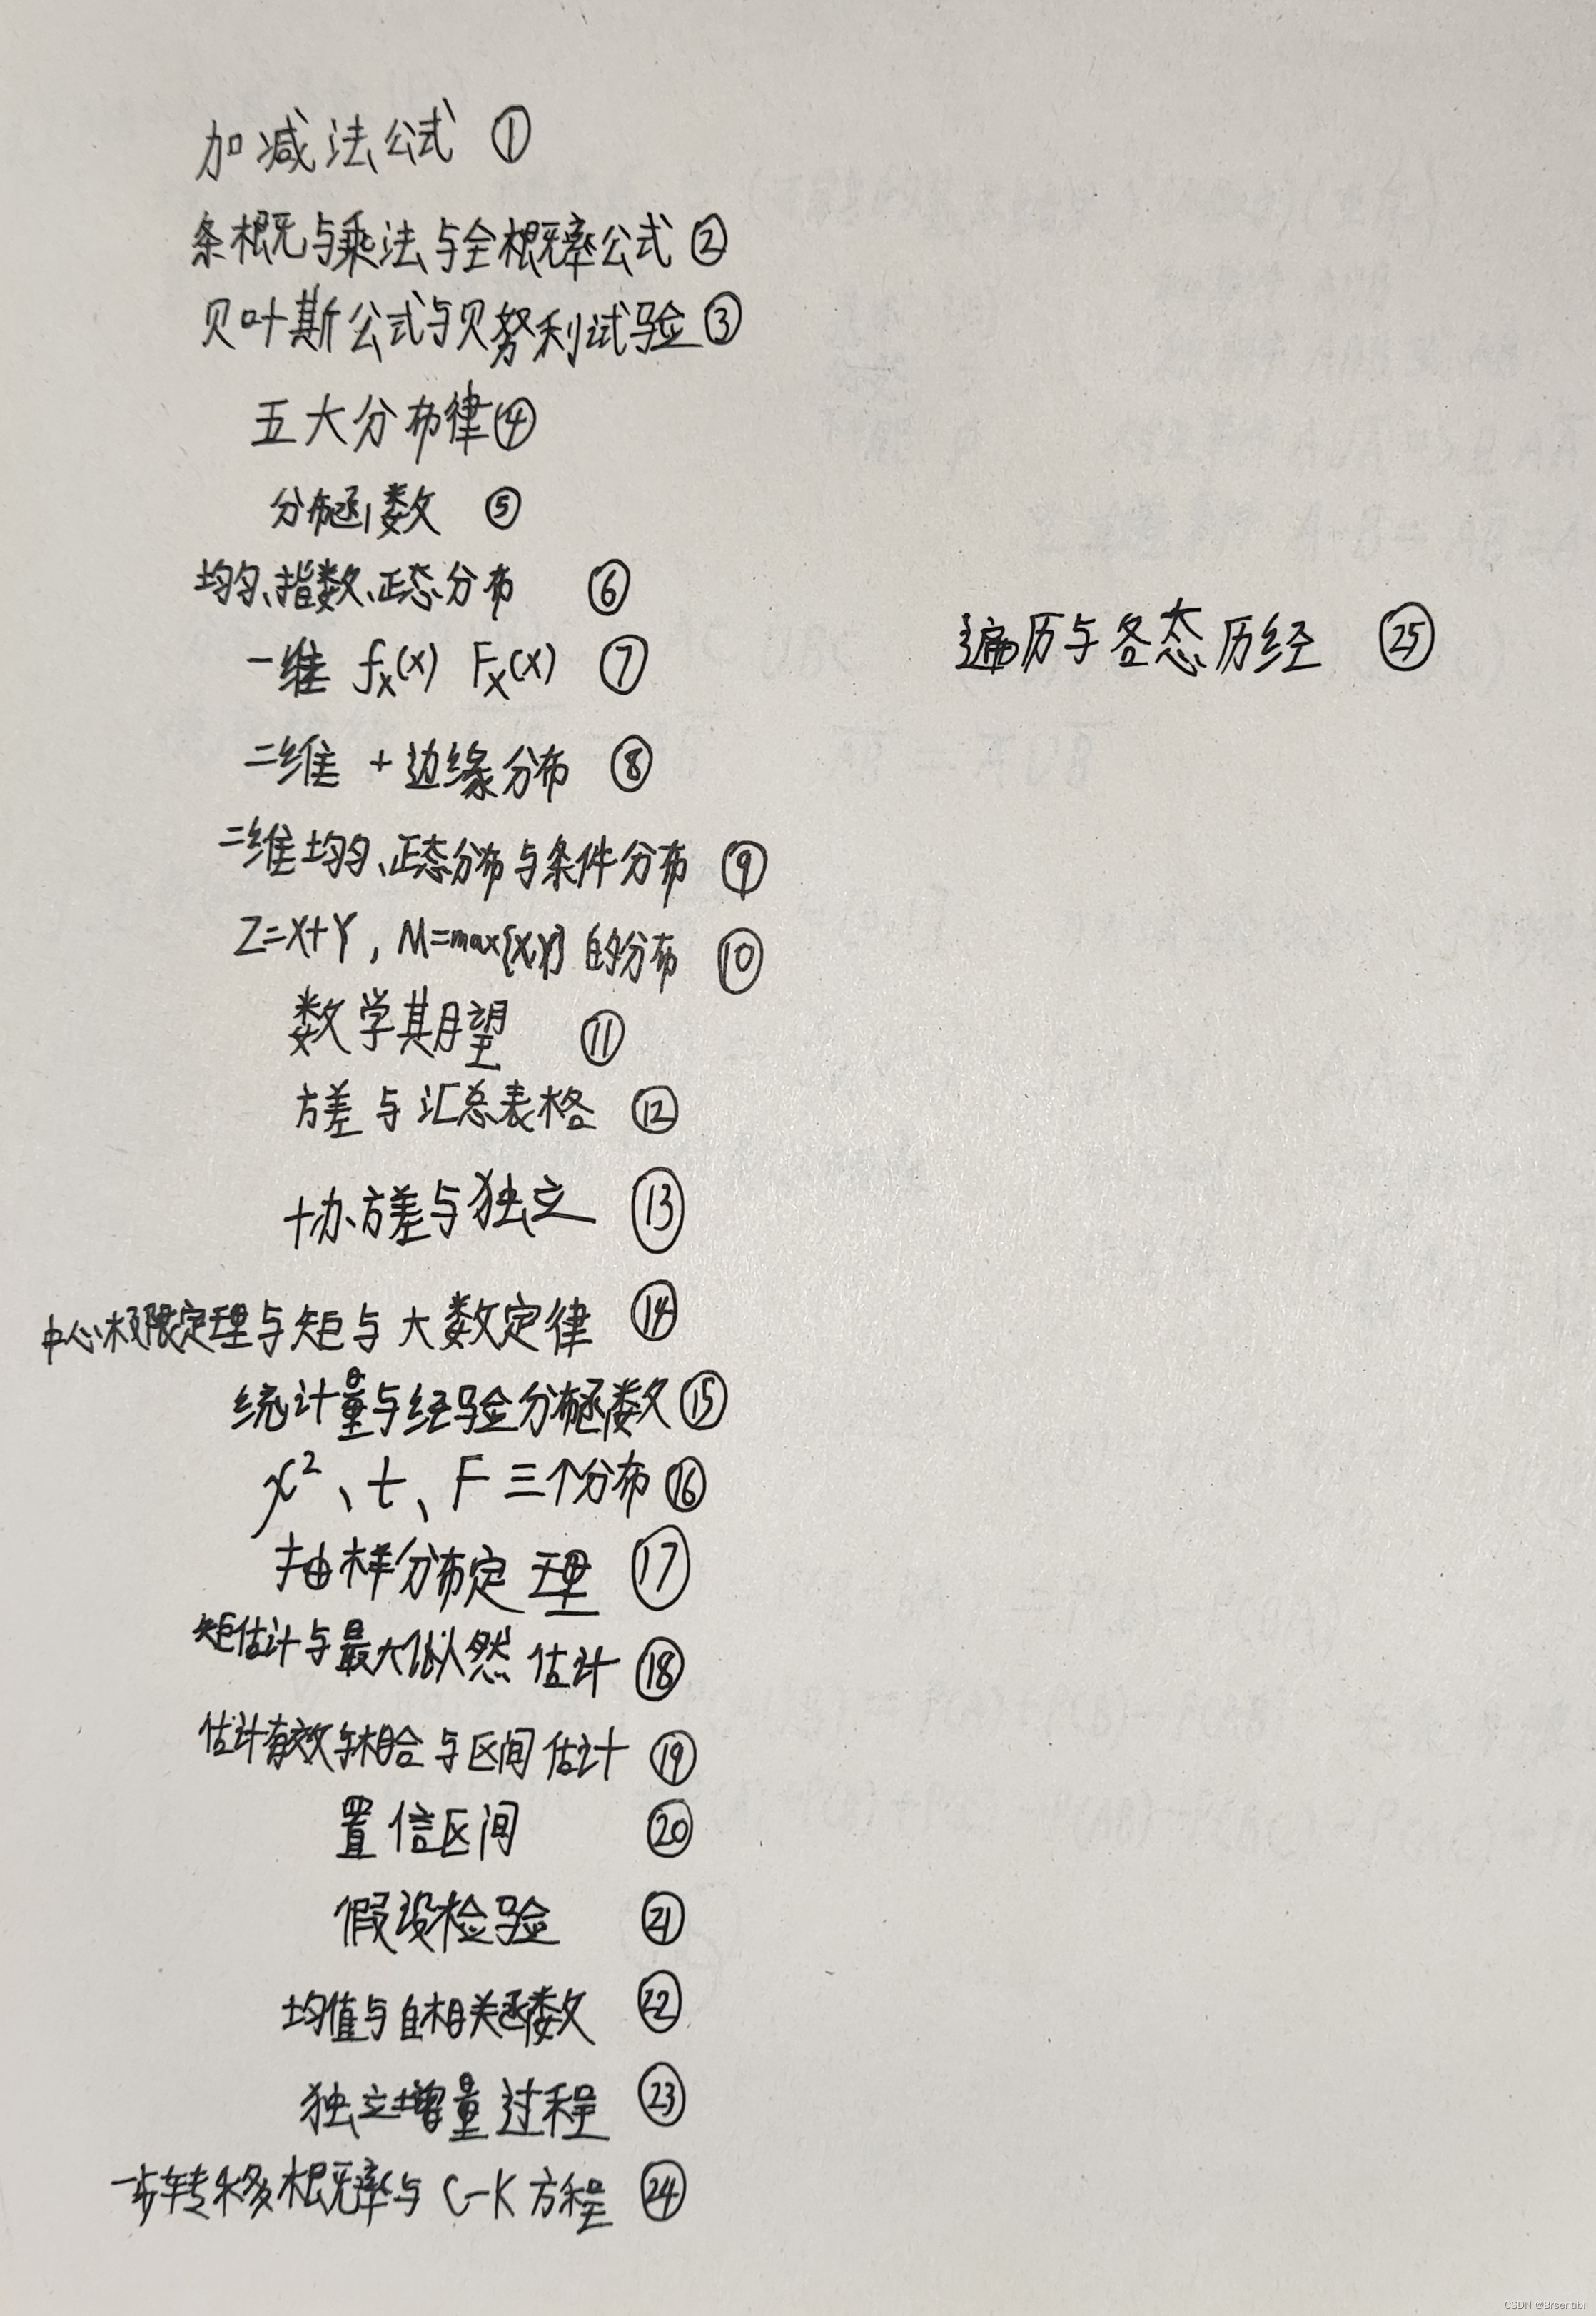 加减法公式 ①
条概与乘法与全概率公式 ②
贝叶斯公式与贝努利试验 ③
五大分布律 ④
分布函数 ⑤
均匀、指数、正态分布 ⑥
一维 fx(x) Fx(x) ⑦
二维 + 边缘分布 ⑧
二维均匀、正态分布与条件分布 ⑨
Z=X+Y, M=max{X,Y} 的分布 ⑩
数学期望 ⑪
方差与汇总表格 ⑫
协方差与独立 ⑬
中心极限定理与矩与大数定律 ⑭
统计量与经验分布函数 ⑮
χ²、t、F 三个分布 ⑯
抽样分布定理 ⑰
矩估计与最大似然估计 ⑱
估计有效与相合与区间估计 ⑲
置信区间 ⑳
假设检验 ㉑
均值与自相关函数 ㉒
独立增量过程 ㉓
一步转移概率与 C-K 方程 ㉔
遍历与各态历经 ㉕
CSDN @Brsentibi